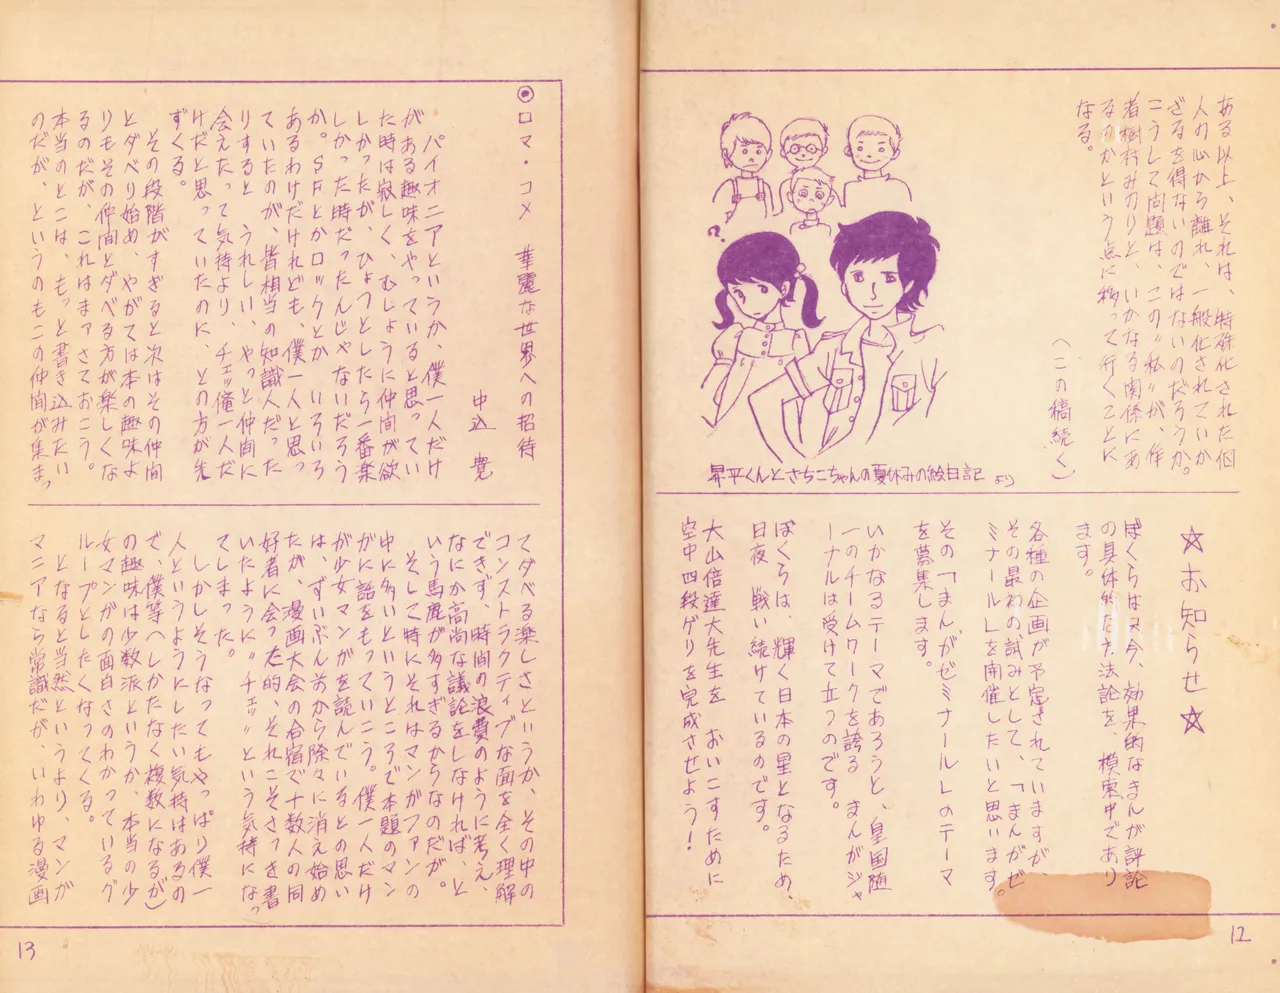 ある以上、それは、特殊化された個
人の心から離れ、一般化されていか
ざるを得ないのではないのだろうか。
こうして問題は、この〝私〟が、作
者樹村みのりと、いかなる関係にあ
るのかという点に移って行くことに
なる。
(この稿続く)
?
昇平くんとさちこちゃんの夏休みの絵日記より
☆お知らせ☆
ぼくらは又今、効果的なまんが評論
の具体的な方法論を、模索中であり
ます。
各種の企画が予定されていますが、
その最初の試みとして、「まんがゼ
ミナール」を開催したいと思います。
その「まんがゼミナール」のテーマ
を募集します。
いかなるテーマであろうと、皇国随
一のチームワークを誇る まんがジャ
ーナルは受けて立つのです。
ぼくらは、輝く日本の星となるため、
日夜 戦い続けているのです。
大山倍達大先生を おいこすために
空中四段ゲリを完成させよう!
12
◎ロマ・コメ 華麗な世界への招待
中込 覺
パイオニアというか、僕一人だけ
がある趣味をやっていると思ってい
た時は寂しく、むしょうに仲間が欲
しかったが、ひょっとしたら一番楽
しかった時だったんじゃないだろう
か。SFとかロックとか いろいろ
あるわけだけれども、僕一人と思っ
ていたのが、皆相当の知識人だった
りすると うれしい、やっと仲間に
会えたって気持より、チェッ俺一人だ
けだと思っていたのに、との方が先
ずくる。
その段階がすぎると次はその仲間
とダベり始め、やがては本の趣味よ
りもその仲間とダベる方が楽しくな
るのだが、これはまァさておこう。
本当のとこは、もっと書き込みたい
のだが、というのもこの仲間が集まっ
てダベる楽しさというか、その中の
コンストラクティブな面を全く理解
できず、時間の浪費のように考え、
なにか高尚な議論をしなければ、と
いう馬鹿が多すぎるからなのだが。
そして時にそれはマンガファンの
中に多いというところで本題のマン
ガに話をもっていこう。僕一人だけ
が少女マンガを読んでいるとの思い
は、ずいぶん前から除々に消え始め
たが、漫画大会の合宿で十数人の同
好者に会った的、それこそさっき書
いたように〝チェッ〟という気持になっ
てしまった。
しかしそうなってもやっぱり僕一
人というようにしたい気持はあるの
で、僕等(しかたなく複数になるが)
の趣味は少数派というか、本当の少
女マンガの面白さのわかっているグ
ループとしたくなってくる。
となると当然というより、マンガ
マニアなら常識だが、いわゆる漫画
13